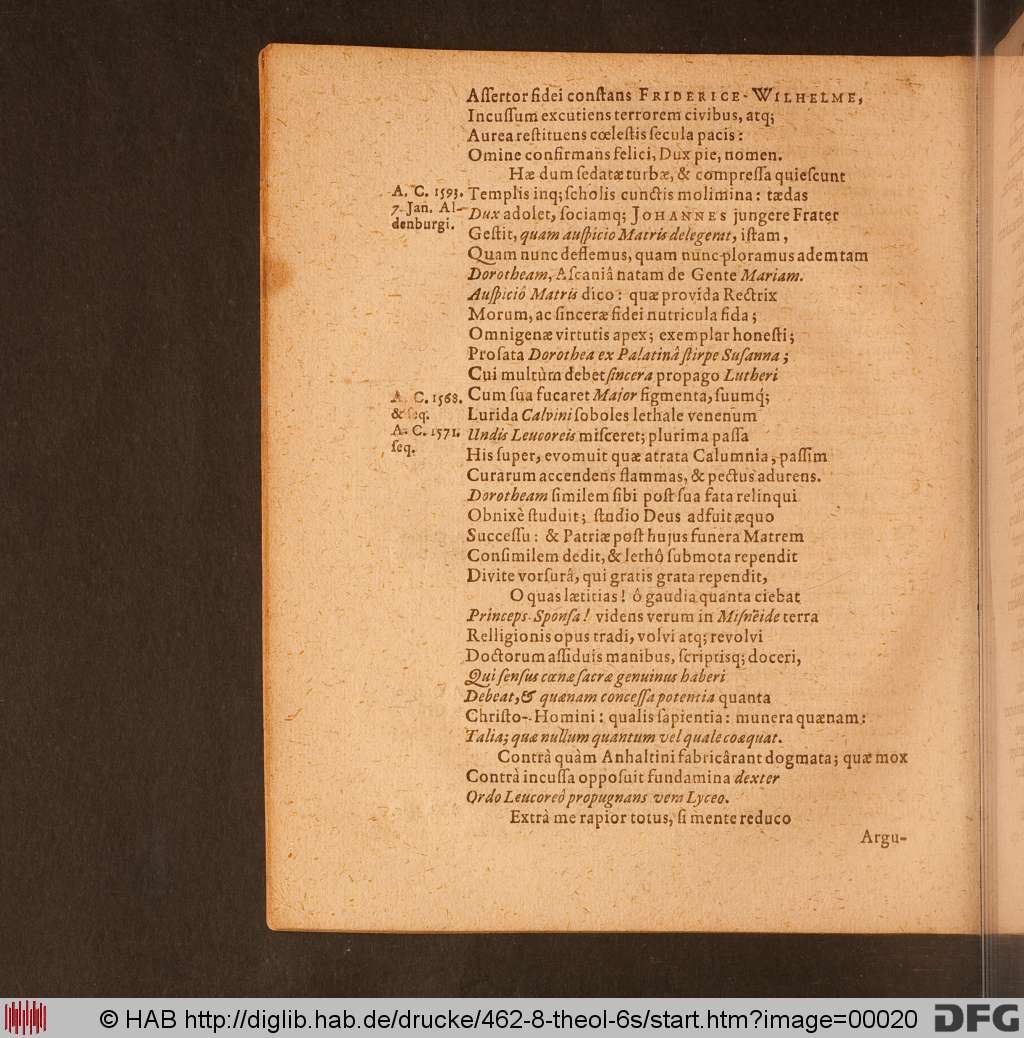 Aſſertor fidei conſtans FRIDERICE-WILHELME,
Incuſſum excutiens terrorem civibus, atq;
Aurea reſtituens cœleſtis ſecula pacis:
Omine confirmans felici, Dux pie, nomen.
Hæ dum ſedatæ turbæ, & compreſſa quieſcunt
A. C. 1593. Templis inq; ſcholis cunctis molimina: tædas
7. Jan. Al- Dux adolet, ſociamq; JOHANNES jungere Frater
denburgi. Geſtit, quam auſpicio Matris delegerat, iſtam,
Quam nunc deflemus, quam nunc ploramus ademtam
Dorotheam, Aſcaniâ natam de Gente Mariam.
Auſpiciô Matris dico: quæ provida Rectrix
Morum, ac ſinceræ fidei nutricula fida;
Omnigenæ virtutis apex; exemplar honeſti;
Proſata Dorothea ex Palatinâ ſtirpe Suſanna;
Cui multùm debet ſincera propago Lutheri
A. C. 1568. Cum ſua fucaret Major figmenta, ſuumq́;
& ſeq. Lurida Calvini ſoboles lethale venenum
A. C. 1571. Undis Leucoreis miſceret; plurima paſſa
ſeq. His ſuper, evomuit quæ atrata Calumnia, paſſim
Curarum accendens flammas, & pectus adurens.
Dorotheam ſimilem ſibi poſt ſua fata relinqui
Obnixè ſtuduit; ſtudio Deus adfuit æquo
Succeſſu: & Patriæ poſt hujus funera Matrem
Conſimilem dedit, & lethô ſubmota rependit
Divite vorſurâ, qui gratis grata rependit,
O quas lætitias! ô gaudia quanta ciebat
Princeps Sponſa! videns verum in Miſneide terra
Relligionis opus tradi, volvi atq; revolvi
Doctorum aſſiduis manibus, ſcriptisq; doceri,
Qui ſenſus cœnæ ſacræ genuinus haberi
Debeat, & quænam conceſſa potentia quanta
Chriſto-Homini: qualis ſapientia: munera quænam:
Talia; quæ nullum quantum vel quale coæquat.
Contrà quàm Anhaltini fabricârant dogmata; quæ mox
Contrà incuſſa oppoſuit fundamina dexter
Ordo Leucoreô propugnans vera Lyceo.
Extrà me rapior totus, ſi mente reduco
Argu-
© HAB http://diglib.hab.de/drucke/462-8-theol-6s/start.htm?image=00020 DFG